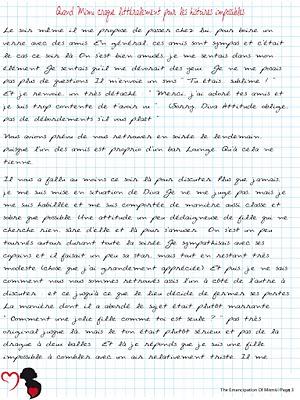 Quand Mimi craque littéralement pour les histoires impossibles
Le soir même il me propose de passer chez lui, pour boire un
verre avec des amis. En général, ces amis sont sympas et c'était
le cas ce soir là. On s'est bien amusés, je me sentais dans mon
élément. Je sentais qu'il me dévorait des yeux. Je ne me posais
pas plus de questions. Il m'envoie un sms "Tu étais sublime !"
Et je renvoie un très détaché "Merci, j'ai adoré tes amis et
je suis trop contente de t'avoir vu". (Sorry, Diva attitude oblige,
pas de débordements s'il vous plaît)
Nous avions prévu de nous retrouver en soirée le lendemain,
puisque l'un des amis est proprio d'un bar Lounge. Qu'à cela ne
tienne.
Il nous a fallu au moins ce soir là pour discuter. Plus que jamais,
je me suis mise en situation de Diva. Je ne me juge pas, mais je
me suis habillée et me suis comportée de manière aussi classe et
sobre que possible. Une attitude un peu dédaigneuse de fille qui ne
cherche rien, sûre d'elle et là pour s'amuser. On s'est un peu
tournés autour durant toute la soirée. Je sympathisais avec ses
copains et il faisait un peu sa star, mais tout en restant très
modeste (chose que j'ai grandement appréciée). Et puis, je ne sais
comment nous nous sommes retrouvés assis l'un à côté de l'autre à
discuter, et ce jusqu'à ce que le lieu décide de fermer ses portes.
La manière dont il a abordé le sujet était plutôt marrante.
"Comment une jolie fille comme toi est seule ?" pas très
original jusque là, mais le ton était plutôt sérieux et pas de la
drague à deux balles. Et là je réponds que je suis une fille
impossible à combler avec un air relativement triste. Il me
The Emancipation Of Mimiii Page 3